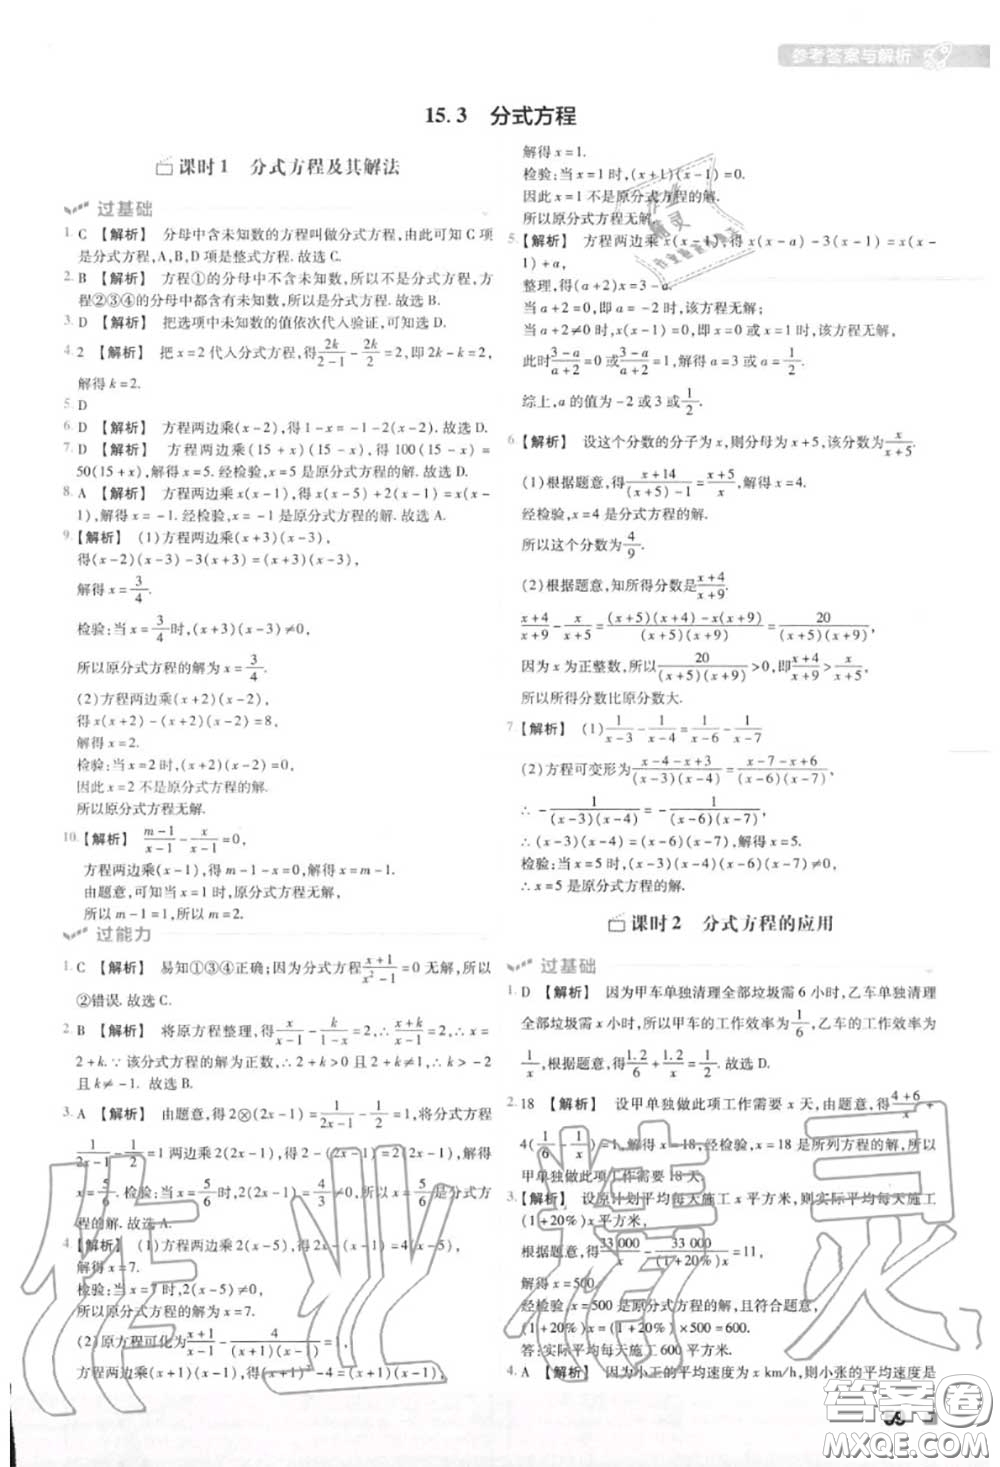 参考答案与解析
15.3 分式方程
课时1 分式方程及其解法
过基础
1. C 【解析】 分母中含未知数的方程叫做分式方程,由此可知 C 项
是分式方程,A、B、D 项是整式方程. 故选 C.
2. B 【解析】 方程①的分母中不含未知数,所以不是分式方程,方
程②③④的分母中都含有未知数,所以是分式方程. 故选 B.
3. D 【解析】 把选项中未知数的值依次代入验证,可知选 D.
4. 2 【解析】 把 x=2 代入分式方程,得 2k/(2-1) - 2k/2 = 2,即 2k-k=2,
解得 k=2.
5. D
6. D 【解析】 方程两边乘(x-2),得 1-x=-1-2(x-2). 故选 D.
7. D 【解析】 方程两边乘(15+x)(15-x),得 100(15-x)=
50(15+x),解得 x=5. 经检验,x=5 是原分式方程的解. 故选 D.
8. A 【解析】 方程两边乘 x(x-1),得 x(x-5)+2(x-1)=x(x-
1),解得 x=-1. 经检验,x=-1 是原分式方程的解. 故选 A.
9. 【解析】 (1)方程两边乘(x+3)(x-3),
得(x-2)(x-3)-3(x+3)=(x+3)(x-3),
解得 x=3/4.
检验:当 x=3/4 时,(x+3)(x-3)≠0,
所以原分式方程的解为 x=3/4.
(2)方程两边乘(x+2)(x-2),
得 x(x+2)-(x+2)(x-2)=8,
解得 x=2.
检验:当 x=2 时,(x+2)(x-2)=0,
因此 x=2 不是原分式方程的解.
所以原分式方程无解.
10. 【解析】 (m-1)/(x-1) - x/(x-1) = 0,
方程两边乘(x-1),得 m-1-x=0,解得 x=m-1.
由题意,可知当 x=1 时,原分式方程无解,
所以 m-1=1,所以 m=2.
过能力
1. C 【解析】 易知①③④正确;因为分式方程 (x+1)/(x²-1) = 0 无解,所以
②错误. 故选 C.
2. B 【解析】 将原方程整理,得 x/(x-1) - k/(1-x) = 2,∴ (x+k)/(x-1) = 2,∴ x=
2+k. ∵ 该分式方程的解为正数,∴ 2+k>0 且 2+k≠1,∴ k>-2
且 k≠-1. 故选 B.
3. A 【解析】 由题意,得 2⊗(2x-1) = 1/(2x-1) - 1/2 = 1,将分式方程
1/(2x-1) - 1/2 = 1 两边乘 2(2x-1),得 2-(2x-1)=2(2x-1),解得
x=5/6. 检验:当 x=5/6 时,2(2x-1)=4/3≠0,所以 x=5/6 是分式方
程的解. 故选 A.
4. 【解析】 (1)方程两边乘 2(x-5),得 2x-(x-1)=4(x-5),
解得 x=7.
检验:当 x=7 时,2(x-5)≠0,
所以原分式方程的解为 x=7.
(2)原方程可化为 (x+1)/(x-1) - 4/((x+1)(x-1)) = 1,
方程两边乘(x+1)(x-1),得(x+1)²-4=(x+1)(x-1),
解得 x=1.
检验:当 x=1 时,(x+1)(x-1)=0.
因此 x=1 不是原分式方程的解.
所以原分式方程无解.
5. 【解析】 方程两边乘 x(x-1),得 x(x-a)-3(x-1)=x(x-
1),
整理,得(a+2)x=3-a.
当 a+2=0,即 a=-2 时,该方程无解;
当 a+2≠0 时,x(x-1)=0,即 x=0 或 x=1 时,该方程无解,
此时 (3-a)/(a+2) = 0 或 (3-a)/(a+2) = 1,解得 a=3 或 a=1/2.
综上,a 的值为-2 或 3 或 1/2.
6. 【解析】 设这个分数的分子为 x,则分母为 x+5,该分数为 x/(x+5).
(1)根据题意,得 (x+14)/((x+5)-1) = (x+5)/x,解得 x=4.
经检验,x=4 是分式方程的解.
所以这个分数为 4/9.
(2)根据题意,知所得分数是 (x+4)/(x+9).
(x+4)/(x+9) - x/(x+5) = ((x+5)(x+4)-x(x+9))/((x+5)(x+9)) = 20/((x+5)(x+9)),
因为 x 为正整数,所以 20/((x+5)(x+9)) > 0,即 (x+4)/(x+9) > x/(x+5),
所以所得分数比原分数大.
7. 【解析】 (1) 1/(x-3) - 1/(x-4) = 1/(x-6) - 1/(x-7)
(2)方程可变形为 (x-4-x+3)/((x-3)(x-4)) = (x-7-x+6)/((x-6)(x-7)),
∴ -1/((x-3)(x-4)) = -1/((x-6)(x-7)),
∴ (x-3)(x-4)=(x-6)(x-7),解得 x=5.
检验:当 x=5 时,(x-3)(x-4)(x-6)(x-7)≠0,
∴ x=5 是原分式方程的解.
课时2 分式方程的应用
过基础
1. D 【解析】 因为甲车单独清理全部垃圾需 6 小时,乙车单独清理
全部垃圾需 x 小时,所以甲车的工作效率为 1/6,乙车的工作效率为
1/x,根据题意,得 1.2/6 + 1.2/x = 1/2. 故选 D.
2. 18 【解析】 设甲单独做此项工作需要 x 天,由题意,得 (4+6)/x +
4(1/6 - 1/x) = 1,解得 x=18,经检验,x=18 是所列方程的解,所以
甲单独做此项工作需要 18 天.
3. 【解析】 设原计划平均每天施工 x 平方米,则实际平均每天施工
(1+20%)x 平方米,
根据题意,得 33 000/x - 33 000/((1+20%)x) = 11,
解得 x=500.
经检验,x=500 是原分式方程的解,且符合题意,
(1+20%)x=(1+20%)×500=600.
答:实际平均每天施工 600 平方米.
4. A 【解析】 因为小工的平均速度为 x km/h,则小张的平均速度是
作业精灵
答案圈
MXQE.COM